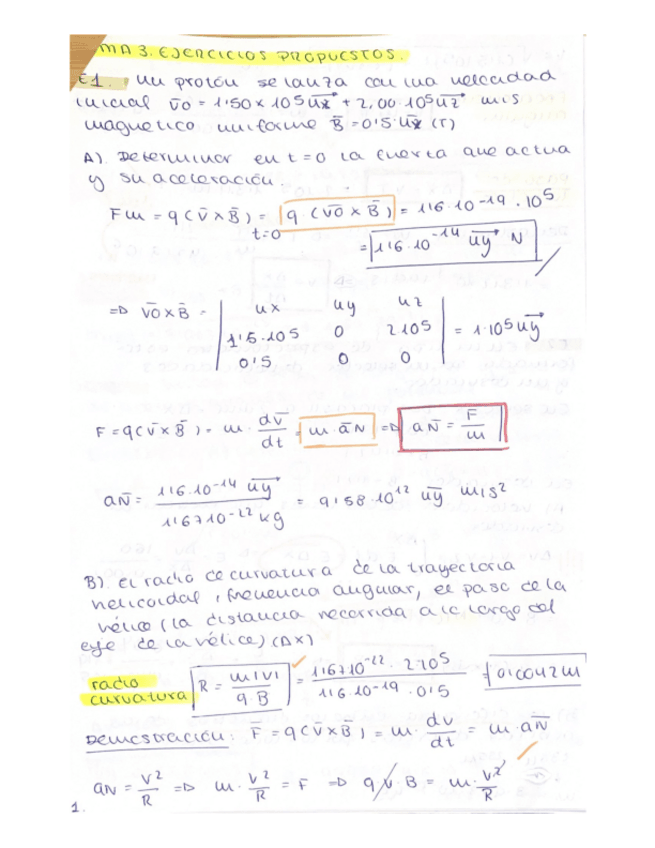 MA 3. EJERCICIOS PROPUESTOS.
E1. Un protón se lanza con una velocidad
inicial v̄o = 1'50 x 10⁵ ux + 2,00·10⁵ uz m/s
magnético uniforme B̄ = 0'5·ux (T)
A). Determinar en t=0 la fuerza que actúa
y su aceleración.
Fm = q(v̄ x B̄) = q·(v̄o x B̄) = 1'6·10⁻¹⁹·10⁵
t=0
= 1'6·10⁻¹⁴ uy N
=D v̄o x B̄ = | ux uy uz |
| 1'5·105 0 2 105 | = 1·105 uy
| 0'5 0 0 |
F = q(v̄ x B̄) = m · dv̄/dt = m·āN =D āN = F̄/m
aN̄ = 1'6·10⁻¹⁴ uy / 1'67 10⁻²⁷ kg = 9'58·10¹² uy m/s²
B). El radio de curvatura de la trayectoria
helicoidal, frecuencia angular, el paso de la
vélice (la distancia recorrida a lo largo del
eje de la vélice) (Δx)
radio
curvatura R = m|v| / q B = 1'67 10⁻²⁷ · 2·10⁵ / 1'6·10⁻¹⁹ · 0'5 = 0'0042 m
Demostración: F̄ = q(v̄ x B̄) = m · dv/dt = m·aN̄
aN = v²/R =D m · v²/R = F =D q v·B = m · v²/R
1.